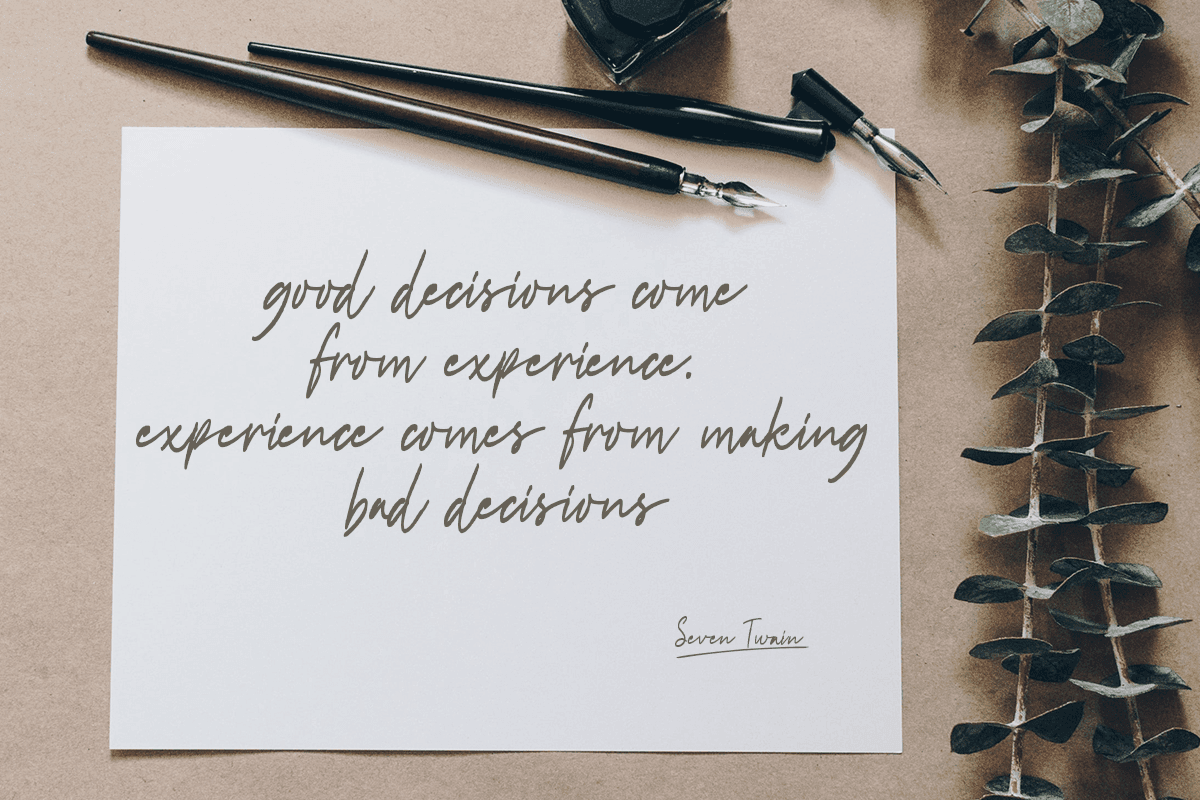 good decisions come
from experience.
experience comes from making
bad decisions
Seven Twain